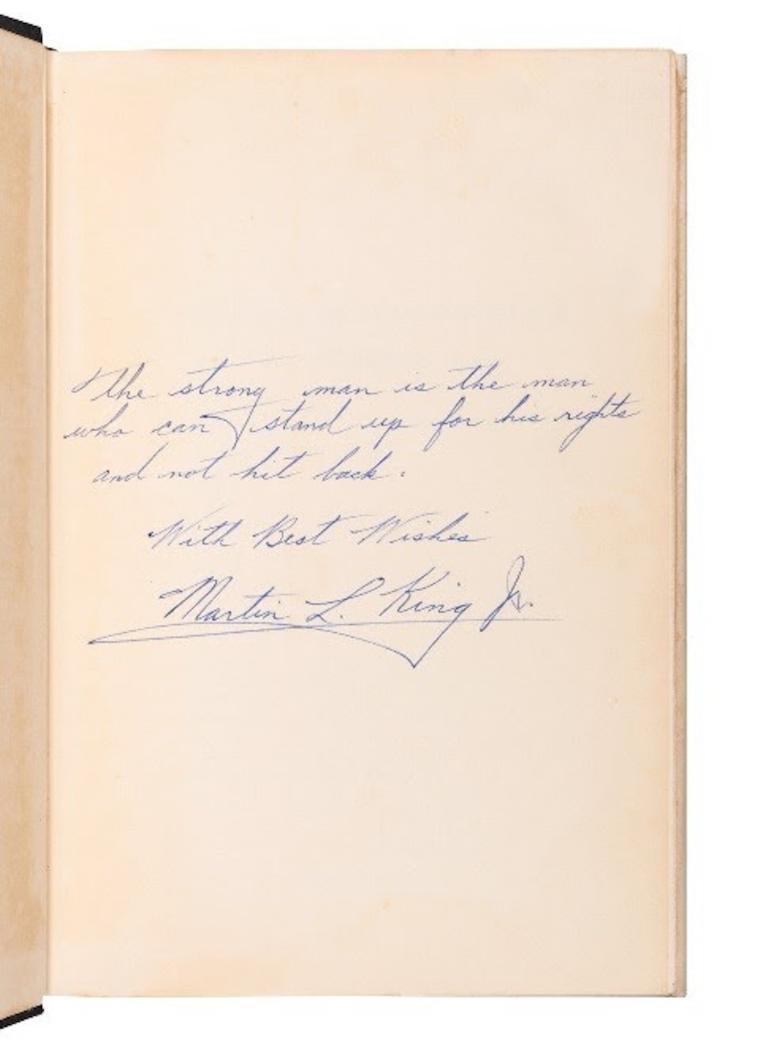 The strong man is the man
who can stand up for his rights
and not hit back.
With Best Wishes
Martin L. King Jr.